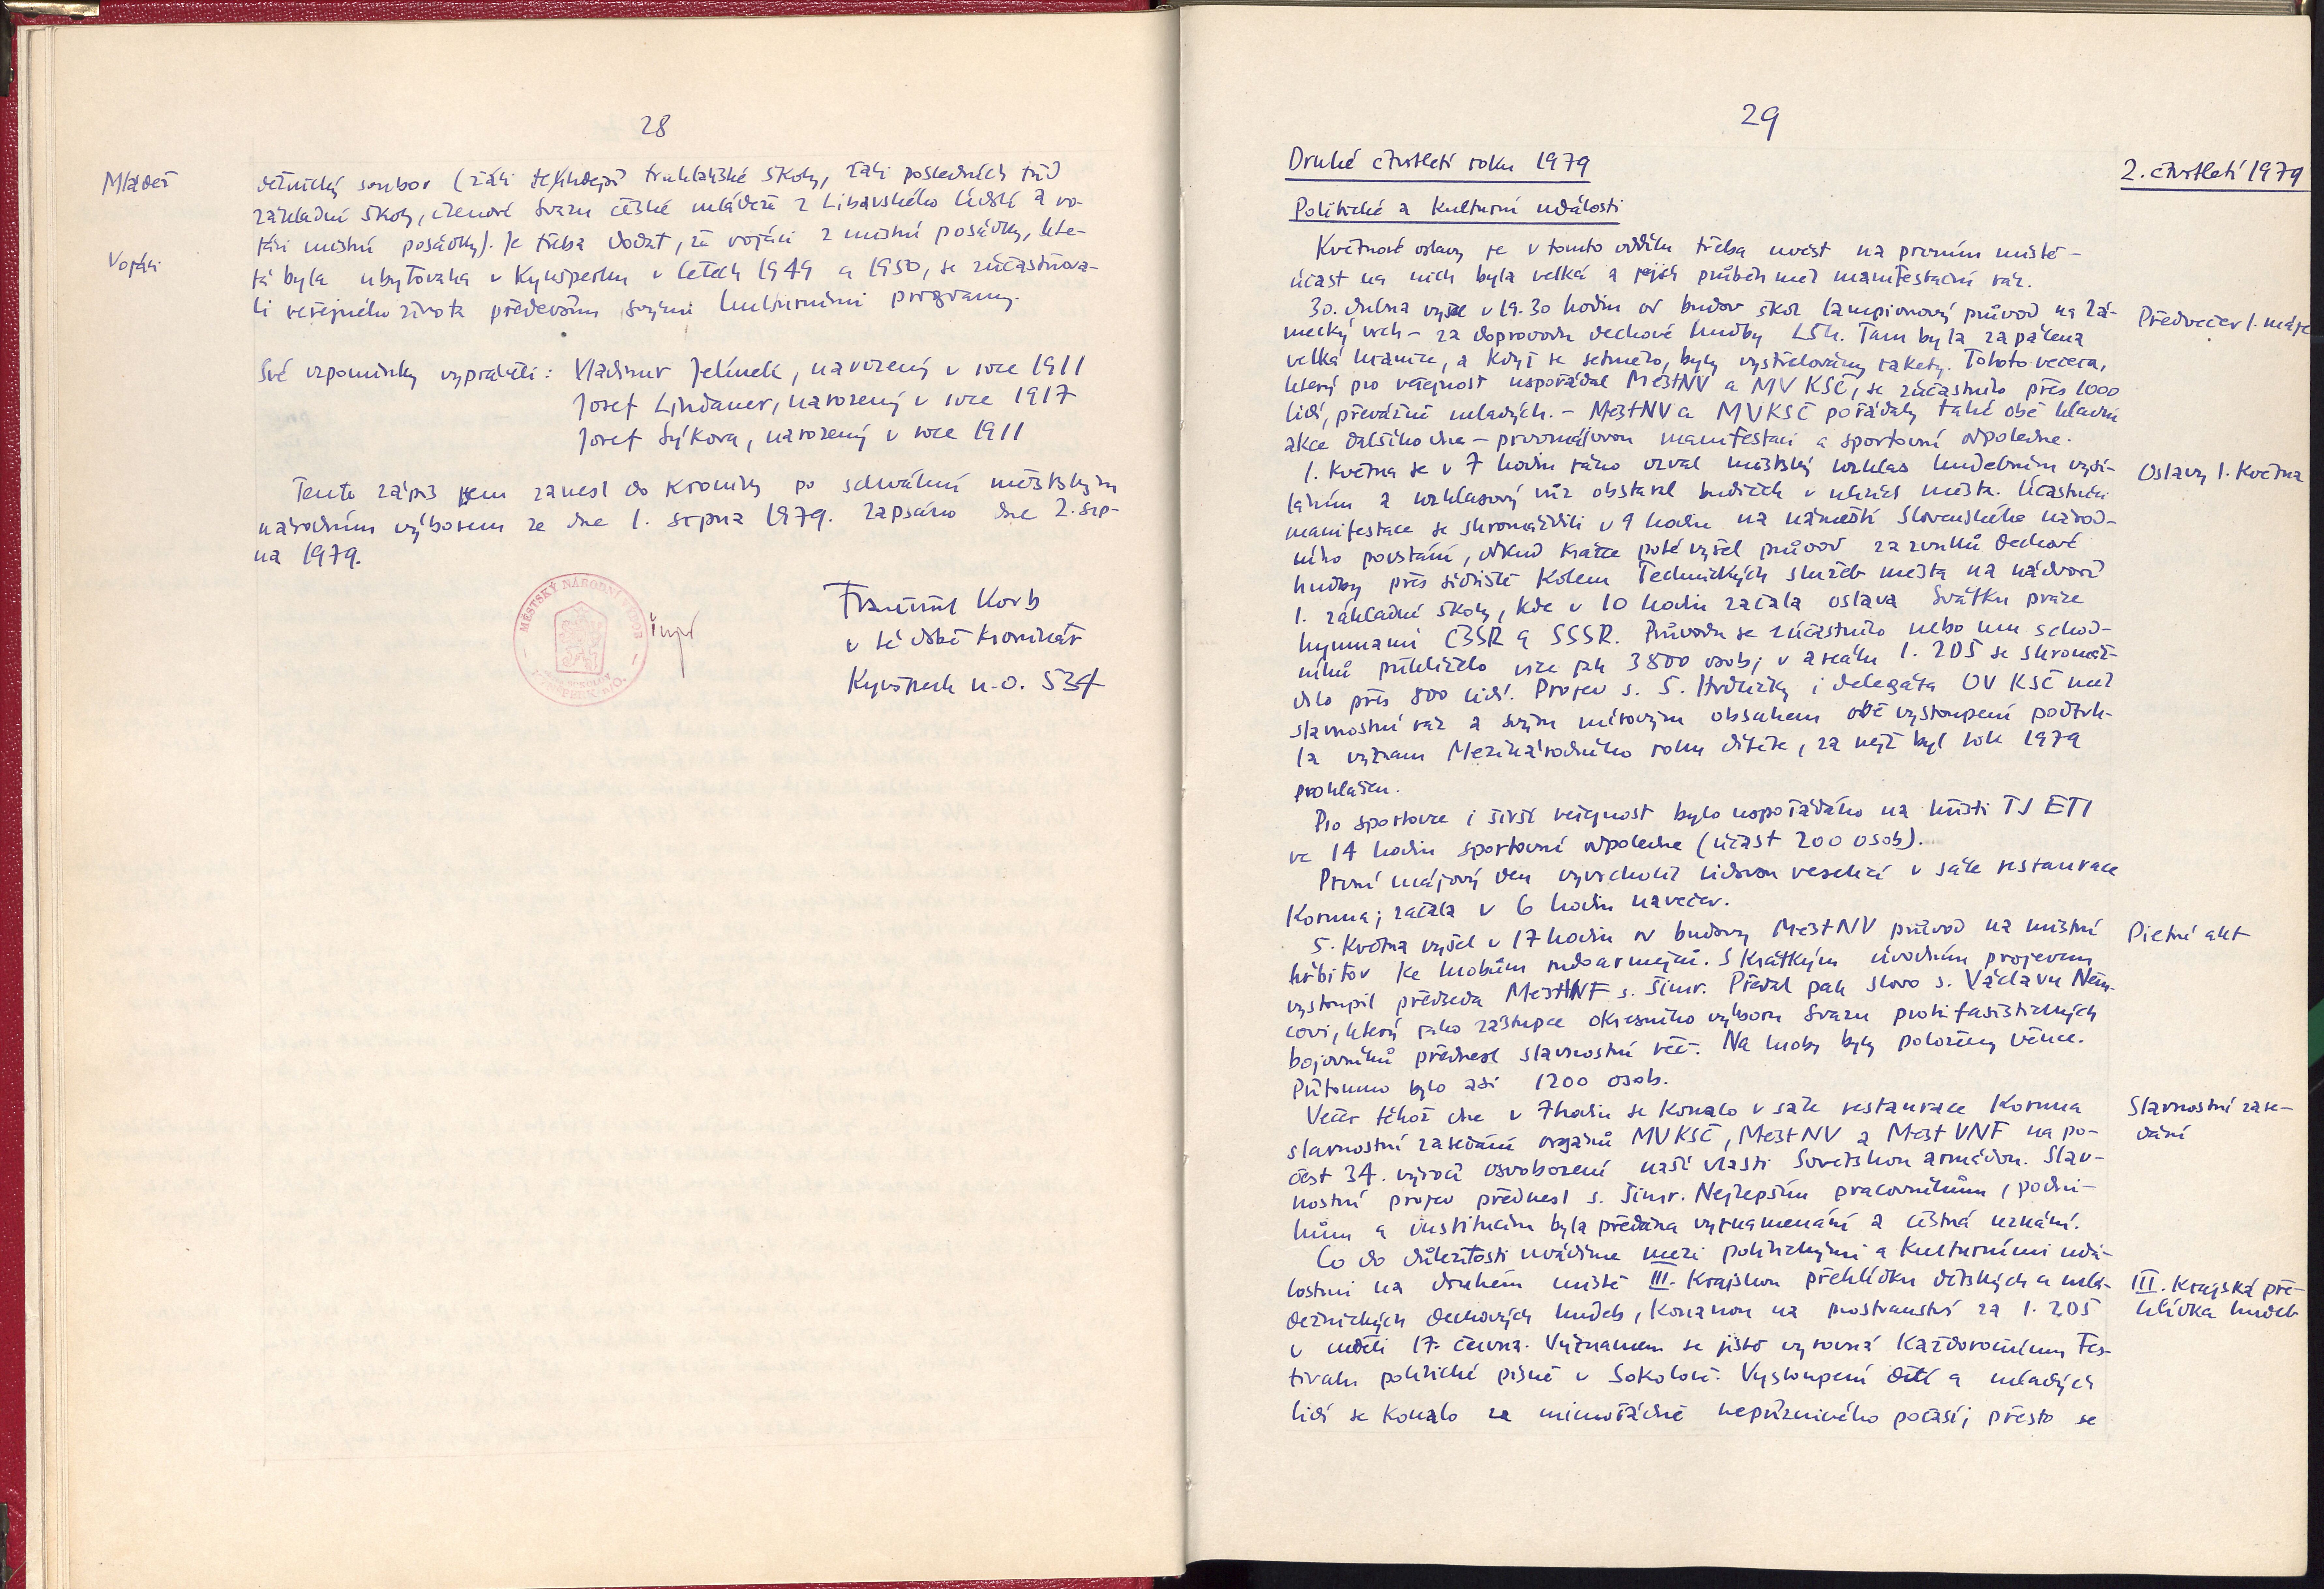 28
Mládež
dežnický soubor (žáci tehdejší truhlářské školy, žáci posledních tříd
základní školy, členové Svazu české mládeže z Libavského Údolí a vo-
Vojáci
jáci místní posádky). Je třeba dodat, že vojáci z místní posádky, kte-
rá byla ubytována v Kynšperku v letech 1949 a 1950, se zúčastňova-
li veřejného života především svými kulturními programy.
Své vzpomínky vyprávěli: Vladimír Jelínek, narozený v roce 1911
Josef Lindauer, narozený v roce 1917
Josef Sýkora, narozený v roce 1911
Tento zápis jsem zanesl do kroniky po schválení městským
národním výborem ze dne 1. srpna 1979. Zapsáno dne 2. srp-
na 1979.
MĚSTSKÝ NÁRODNÍ VÝBOR
František Korb
v té době kronikář
Kynšperk n.O. 534
29
Druhé čtvrtletí roku 1979
2. čtvrtletí 1979
Politické a kulturní události
Květnové oslavy je v tomto oddílu třeba uvést na prvním místě -
účast na nich byla velká a jejich průběh měl manifestační ráz.
30. dubna vyšel v 19.30 hodin od budov škol lampionový průvod na Zá-
Předvečer 1. máje
mecký vrch - za doprovodu dechové hudby LŠU. Tam byla zapálena
velká hranice, a když se setmělo, byly vystřelovány rakety. Tohoto večera,
který pro veřejnost uspořádal MěstNV a MV KSČ, se zúčastnilo přes 1000
lidí, převážně mladých. - MěstNV a MVKSČ pořádaly také obě hlavní
akce dalšího dne - prvomájovou manifestaci a sportovní odpoledne.
1. května se v 7 hodin ráno ozval městský rozhlas hudebním vysí-
Oslavy 1. května
láním a rozhlasový vůz obstaral budíček v ulicích města. Účastníci
manifestace se shromáždili v 9 hodin na náměstí Slovenského národ-
ního povstání, odkud krátce poté vyšel průvod za zvuků dechové
hudby přes sídliště kolem Technických služeb města na nádvoří
1. základní školy, kde v 10 hodin začala oslava Svátku práce
hymnami ČSSR a SSSR. Průvodu se zúčastnilo nebo mu z chod-
níků přihlíželo více jak 3800 osob; v areálu 1. ZDŠ se shromáž-
dilo přes 800 lidí. Projev s. S. Hrdličky i delegáta OV KSČ měl
slavnostní ráz a svým mírovým obsahem obě vystoupení podtrh-
la význam Mezinárodního roku dítěte, za nějž byl rok 1979
prohlášen.
Pro sportovce i širší veřejnost bylo uspořádáno na hřišti TJ ETI
ve 14 hodin sportovní odpoledne (účast 200 osob).
První májový den vyvrcholil lidovou veselicí v sále restaurace
Koruna; začala v 6 hodin navečer.
5. května vyšel v 17 hodin od budovy MěstNV průvod na místní
Pietní akt
hřbitov ke hrobům rudoarmějců. S krátkým úvodním projevem
vystoupil předseda MěstVNF s. Šimr. Předal pak slovo s. Václavu Něm-
covi, který jako zástupce okresního výboru Svazu protifašistických
bojovníků přednesl slavnostní řeč. Na hroby byly položeny věnce.
Přítomno bylo asi 1200 osob.
Večer téhož dne v 7 hodin se konalo v sále restaurace Koruna
Slavnostní zase-
dání
slavnostní zasedání orgánů MVKSČ, MěstNV a MěstVNF na po-
čest 34. výročí osvobození naší vlasti Sovětskou armádou. Slav-
nostní projev přednesl s. Šimr. Nejlepším pracovníkům, podni-
kům a institucím byla předána vyznamenání a čestná uznání.
Co do důležitosti uvádíme mezi politickými a kulturními udá-
lostmi na druhém místě III. krajskou přehlídku dětských a mlá-
III. Krajská pře-
hlídka hudeb
dežnických dechových hudeb, konanou na prostranství za 1. ZDŠ
v neděli 17. června. Významem se jistě vyrovná každoročnímu Fes-
tivalu politické písně v Sokolově. Vystoupení dětí a mladých
lidí se konalo za mimořádně nepříznivého počasí; přesto se